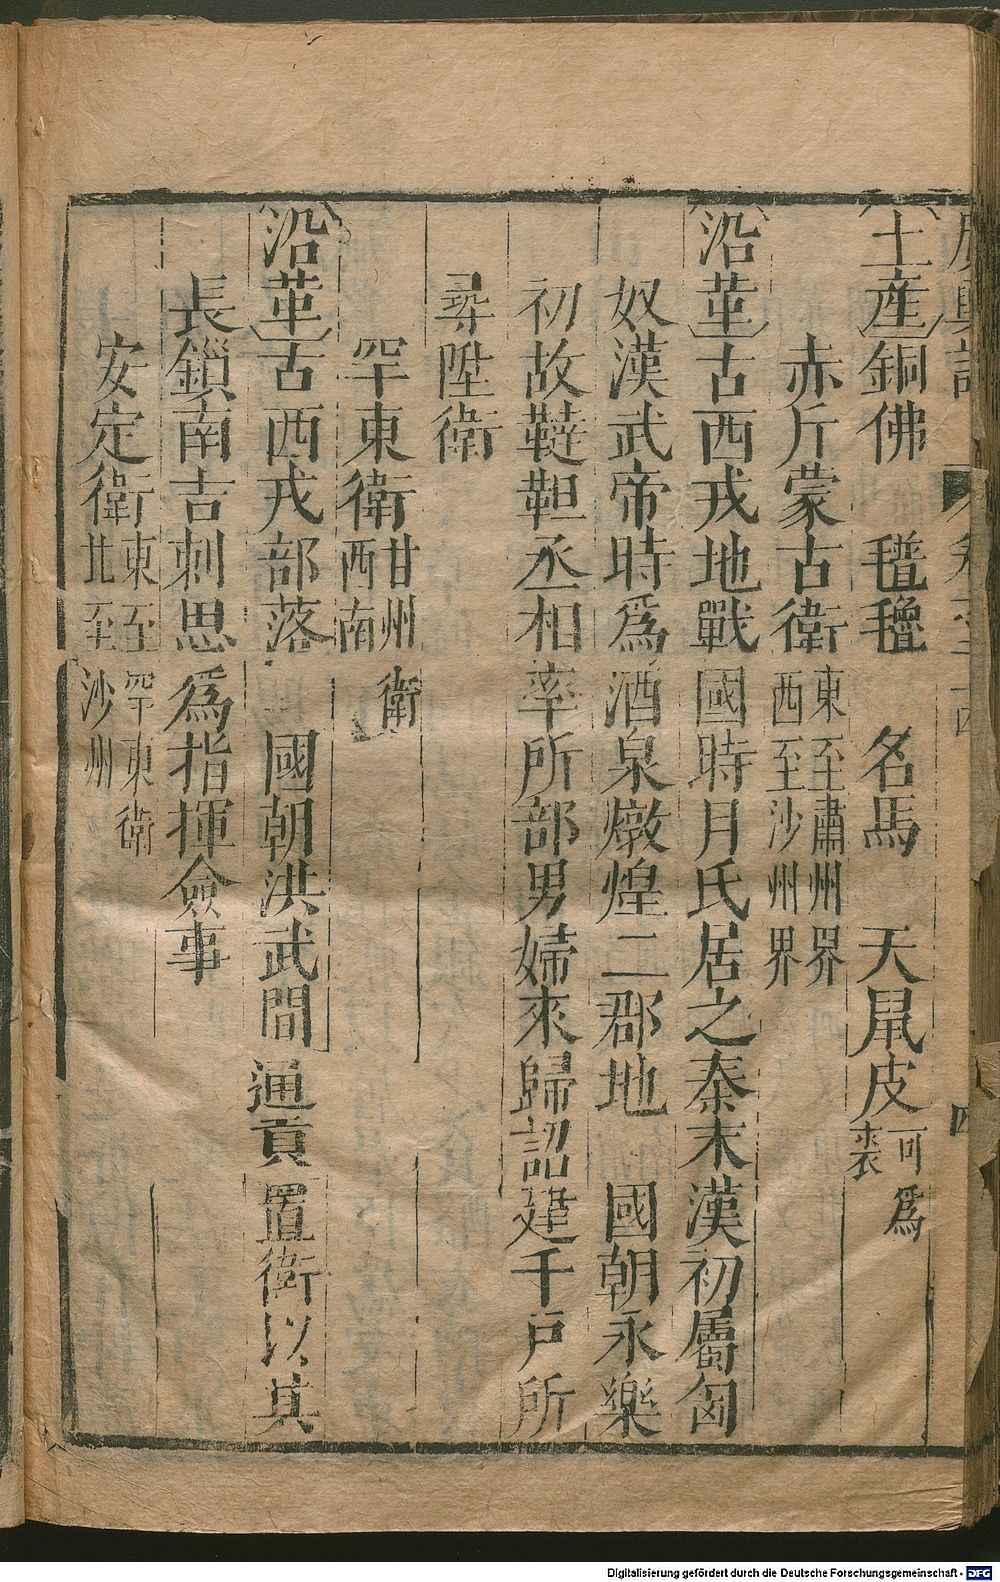 廣輿記 卷二十四 四
土產 銅佛 氆氌 名馬 天鼠皮 可爲裘
赤斤蒙古衛 東至肅州界西至沙州界
沿革 古西戎地戰國時月氏居之秦末漢初屬匈
奴漢武帝時爲酒泉燉煌二郡地 國朝永樂
初故韃靼丞相率所部男婦來歸詔建千戶所
尋陞衛
罕東衛 甘州衛西南
沿革 古西戎部落 國朝洪武間通貢置衛以其
長鎖南吉剌思爲指揮僉事
安定衛 東至罕東衛北至沙州
Digitalisierung gefördert durch die Deutsche Forschungsgemeinschaft - DFG